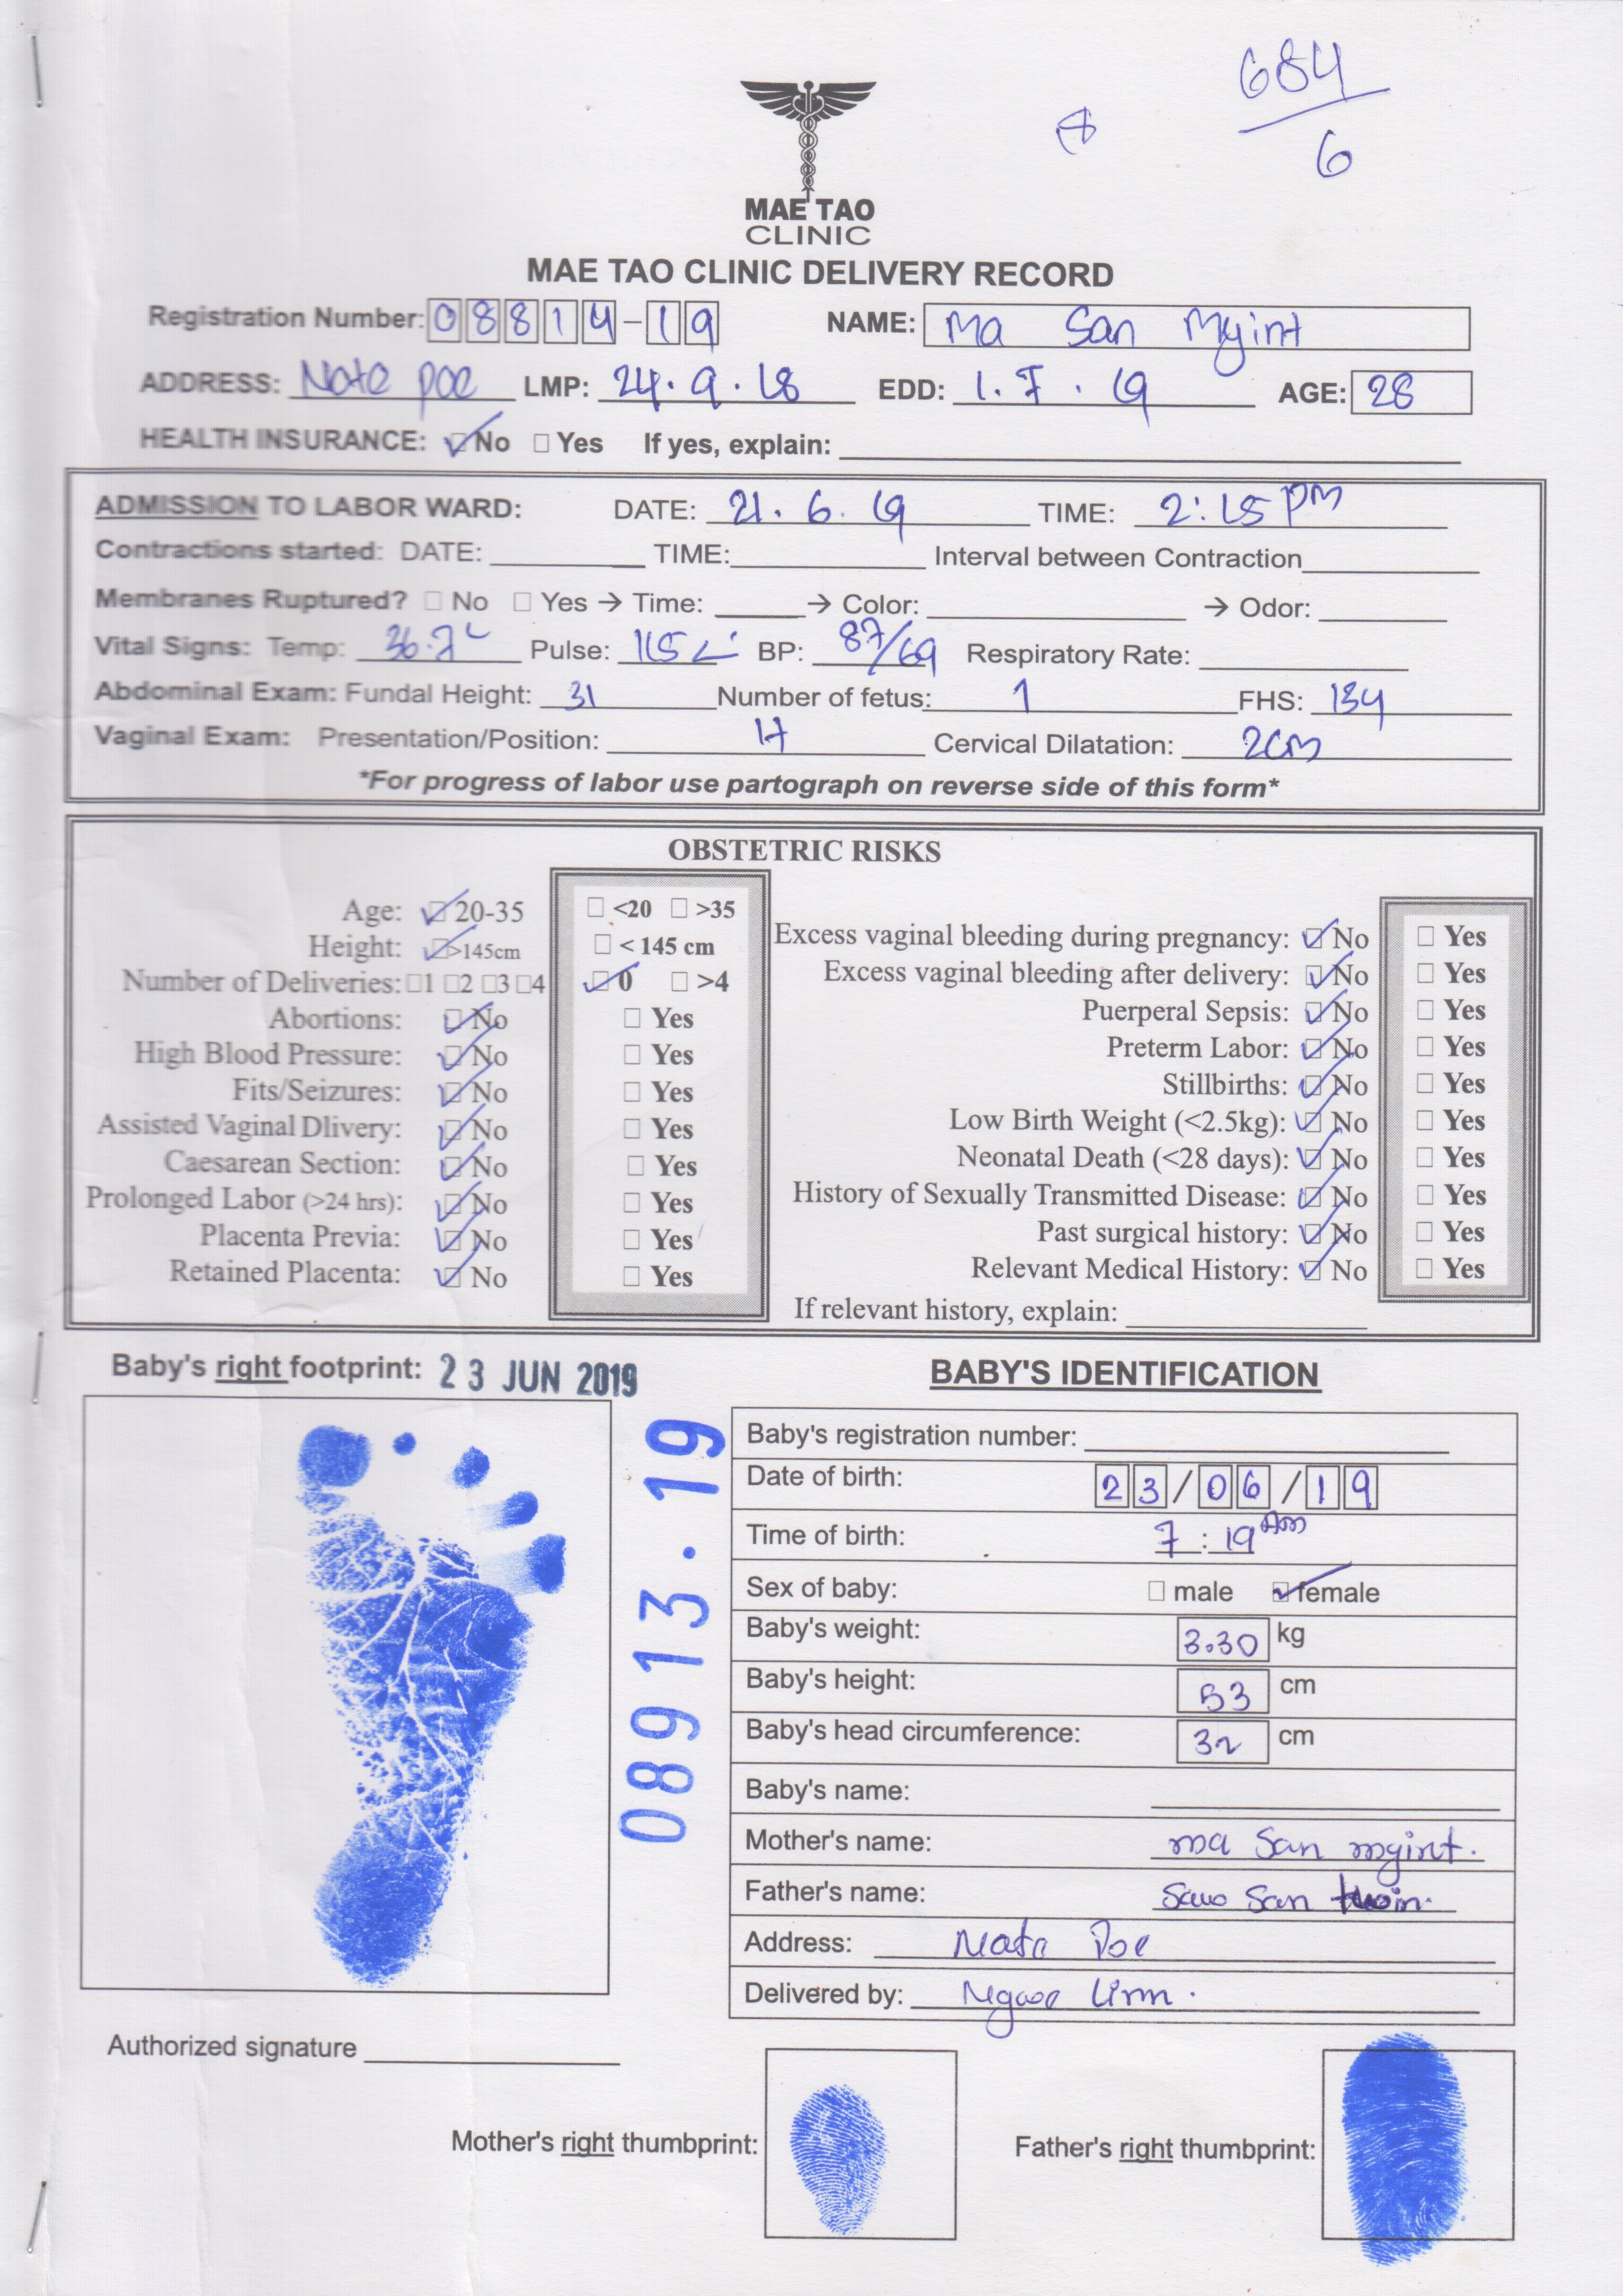 684
6
MAE TAO
CLINIC
MAE TAO CLINIC DELIVERY RECORD
Registration Number: 08814-19 NAME: Ma San Myint
ADDRESS: Nate poe LMP: 24.9.18 EDD: 1.7.19 AGE: 28
HEALTH INSURANCE: ☑ No ☐ Yes If yes, explain:
ADMISSION TO LABOR WARD: DATE: 21.6.19 TIME: 2:15 PM
Contractions started: DATE: TIME: Interval between Contraction
Membranes Ruptured? ☐ No ☐ Yes → Time: → Color: → Odor:
Vital Signs: Temp: 36.7 Pulse: 115 BP: 87/69 Respiratory Rate:
Abdominal Exam: Fundal Height: 31 Number of fetus: 1 FHS: 134
Vaginal Exam: Presentation/Position: H Cervical Dilatation: 2cm
*For progress of labor use partograph on reverse side of this form*
OBSTETRIC RISKS
Age: ☑ 20-35 ☐ <20 ☐ >35
Height: ☑ >145cm ☐ < 145 cm
Number of Deliveries: ☐1 ☐2 ☐3 ☐4 ☑ 0 ☐ >4
Abortions: ☑ No ☐ Yes
High Blood Pressure: ☑ No ☐ Yes
Fits/Seizures: ☑ No ☐ Yes
Assisted Vaginal Dlivery: ☑ No ☐ Yes
Caesarean Section: ☑ No ☐ Yes
Prolonged Labor (>24 hrs): ☑ No ☐ Yes
Placenta Previa: ☑ No ☐ Yes
Retained Placenta: ☑ No ☐ Yes
Excess vaginal bleeding during pregnancy: ☑ No ☐ Yes
Excess vaginal bleeding after delivery: ☑ No ☐ Yes
Puerperal Sepsis: ☑ No ☐ Yes
Preterm Labor: ☑ No ☐ Yes
Stillbirths: ☑ No ☐ Yes
Low Birth Weight (<2.5kg): ☑ No ☐ Yes
Neonatal Death (<28 days): ☑ No ☐ Yes
History of Sexually Transmitted Disease: ☑ No ☐ Yes
Past surgical history: ☑ No ☐ Yes
Relevant Medical History: ☑ No ☐ Yes
If relevant history, explain:
Baby's right footprint: 23 JUN 2019
08913.19
BABY'S IDENTIFICATION
Baby's registration number:
Date of birth: 23/06/19
Time of birth: 7:19 AM
Sex of baby: ☐ male ☑ female
Baby's weight: 3.30 kg
Baby's height: 53 cm
Baby's head circumference: 32 cm
Baby's name:
Mother's name: ma San myint.
Father's name: San
Address:
Delivered by:
Authorized signature
Mother's right thumbprint:
Father's right thumbprint: